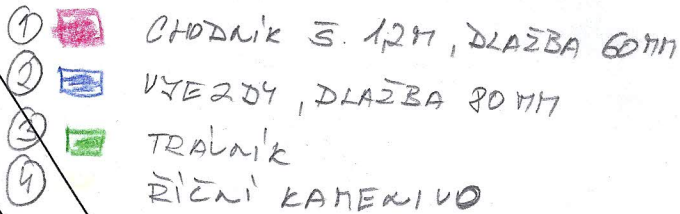 ① CHODNÍK Š. 1,2M, DLAŽBA 60MM
② VJEZDY, DLAŽBA 80MM
③ TRÁVNÍK
④ ŘÍČNÍ KAMENIVO